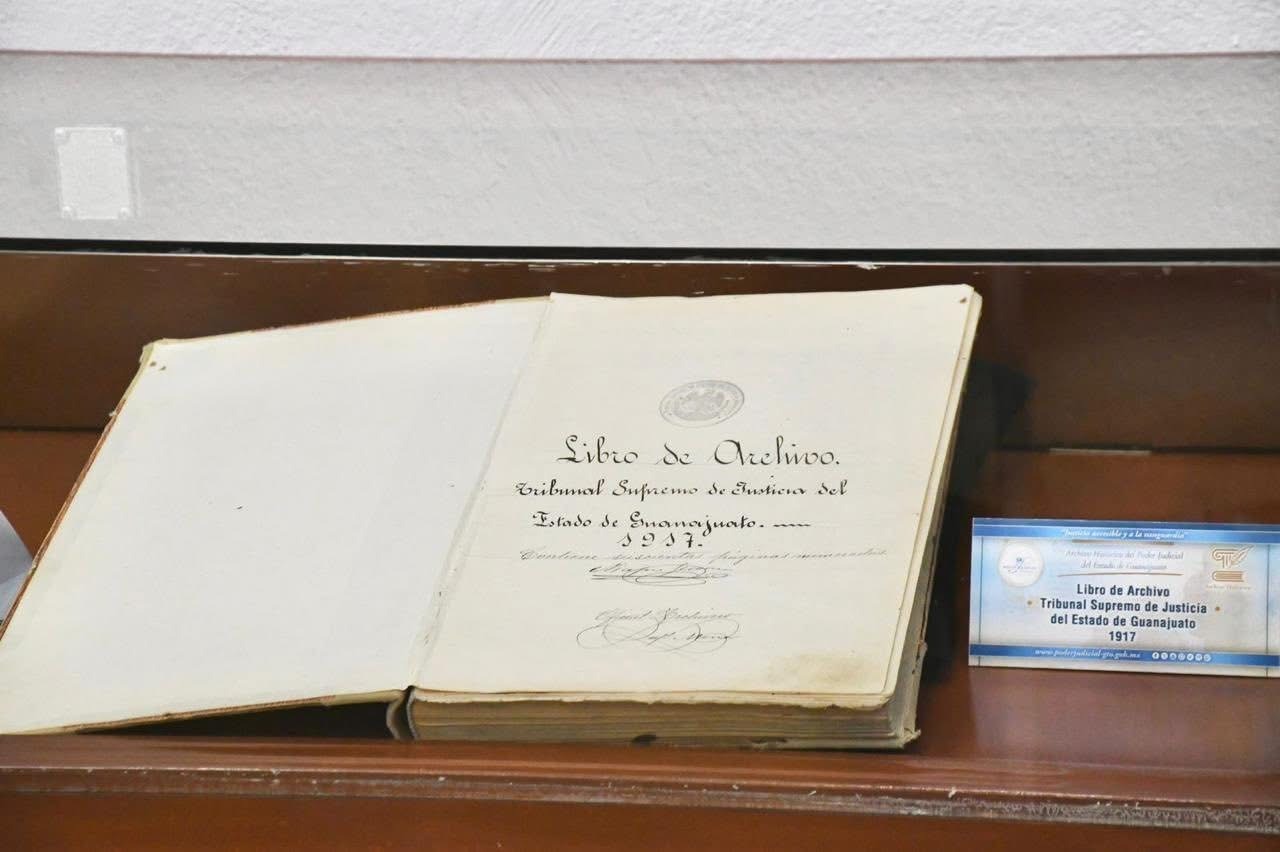 Libro de Archivo.
Tribunal Supremo de Justicia del
Estado de Guanajuato.
1917.
Contiene páginas numeradas
"Justicia accesible y a la vanguardia"
Archivo Histórico del Poder Judicial
del Estado de Guanajuato
Libro de Archivo
Tribunal Supremo de Justicia
del Estado de Guanajuato
1917
www.poderjudicial-gto.gob.mx